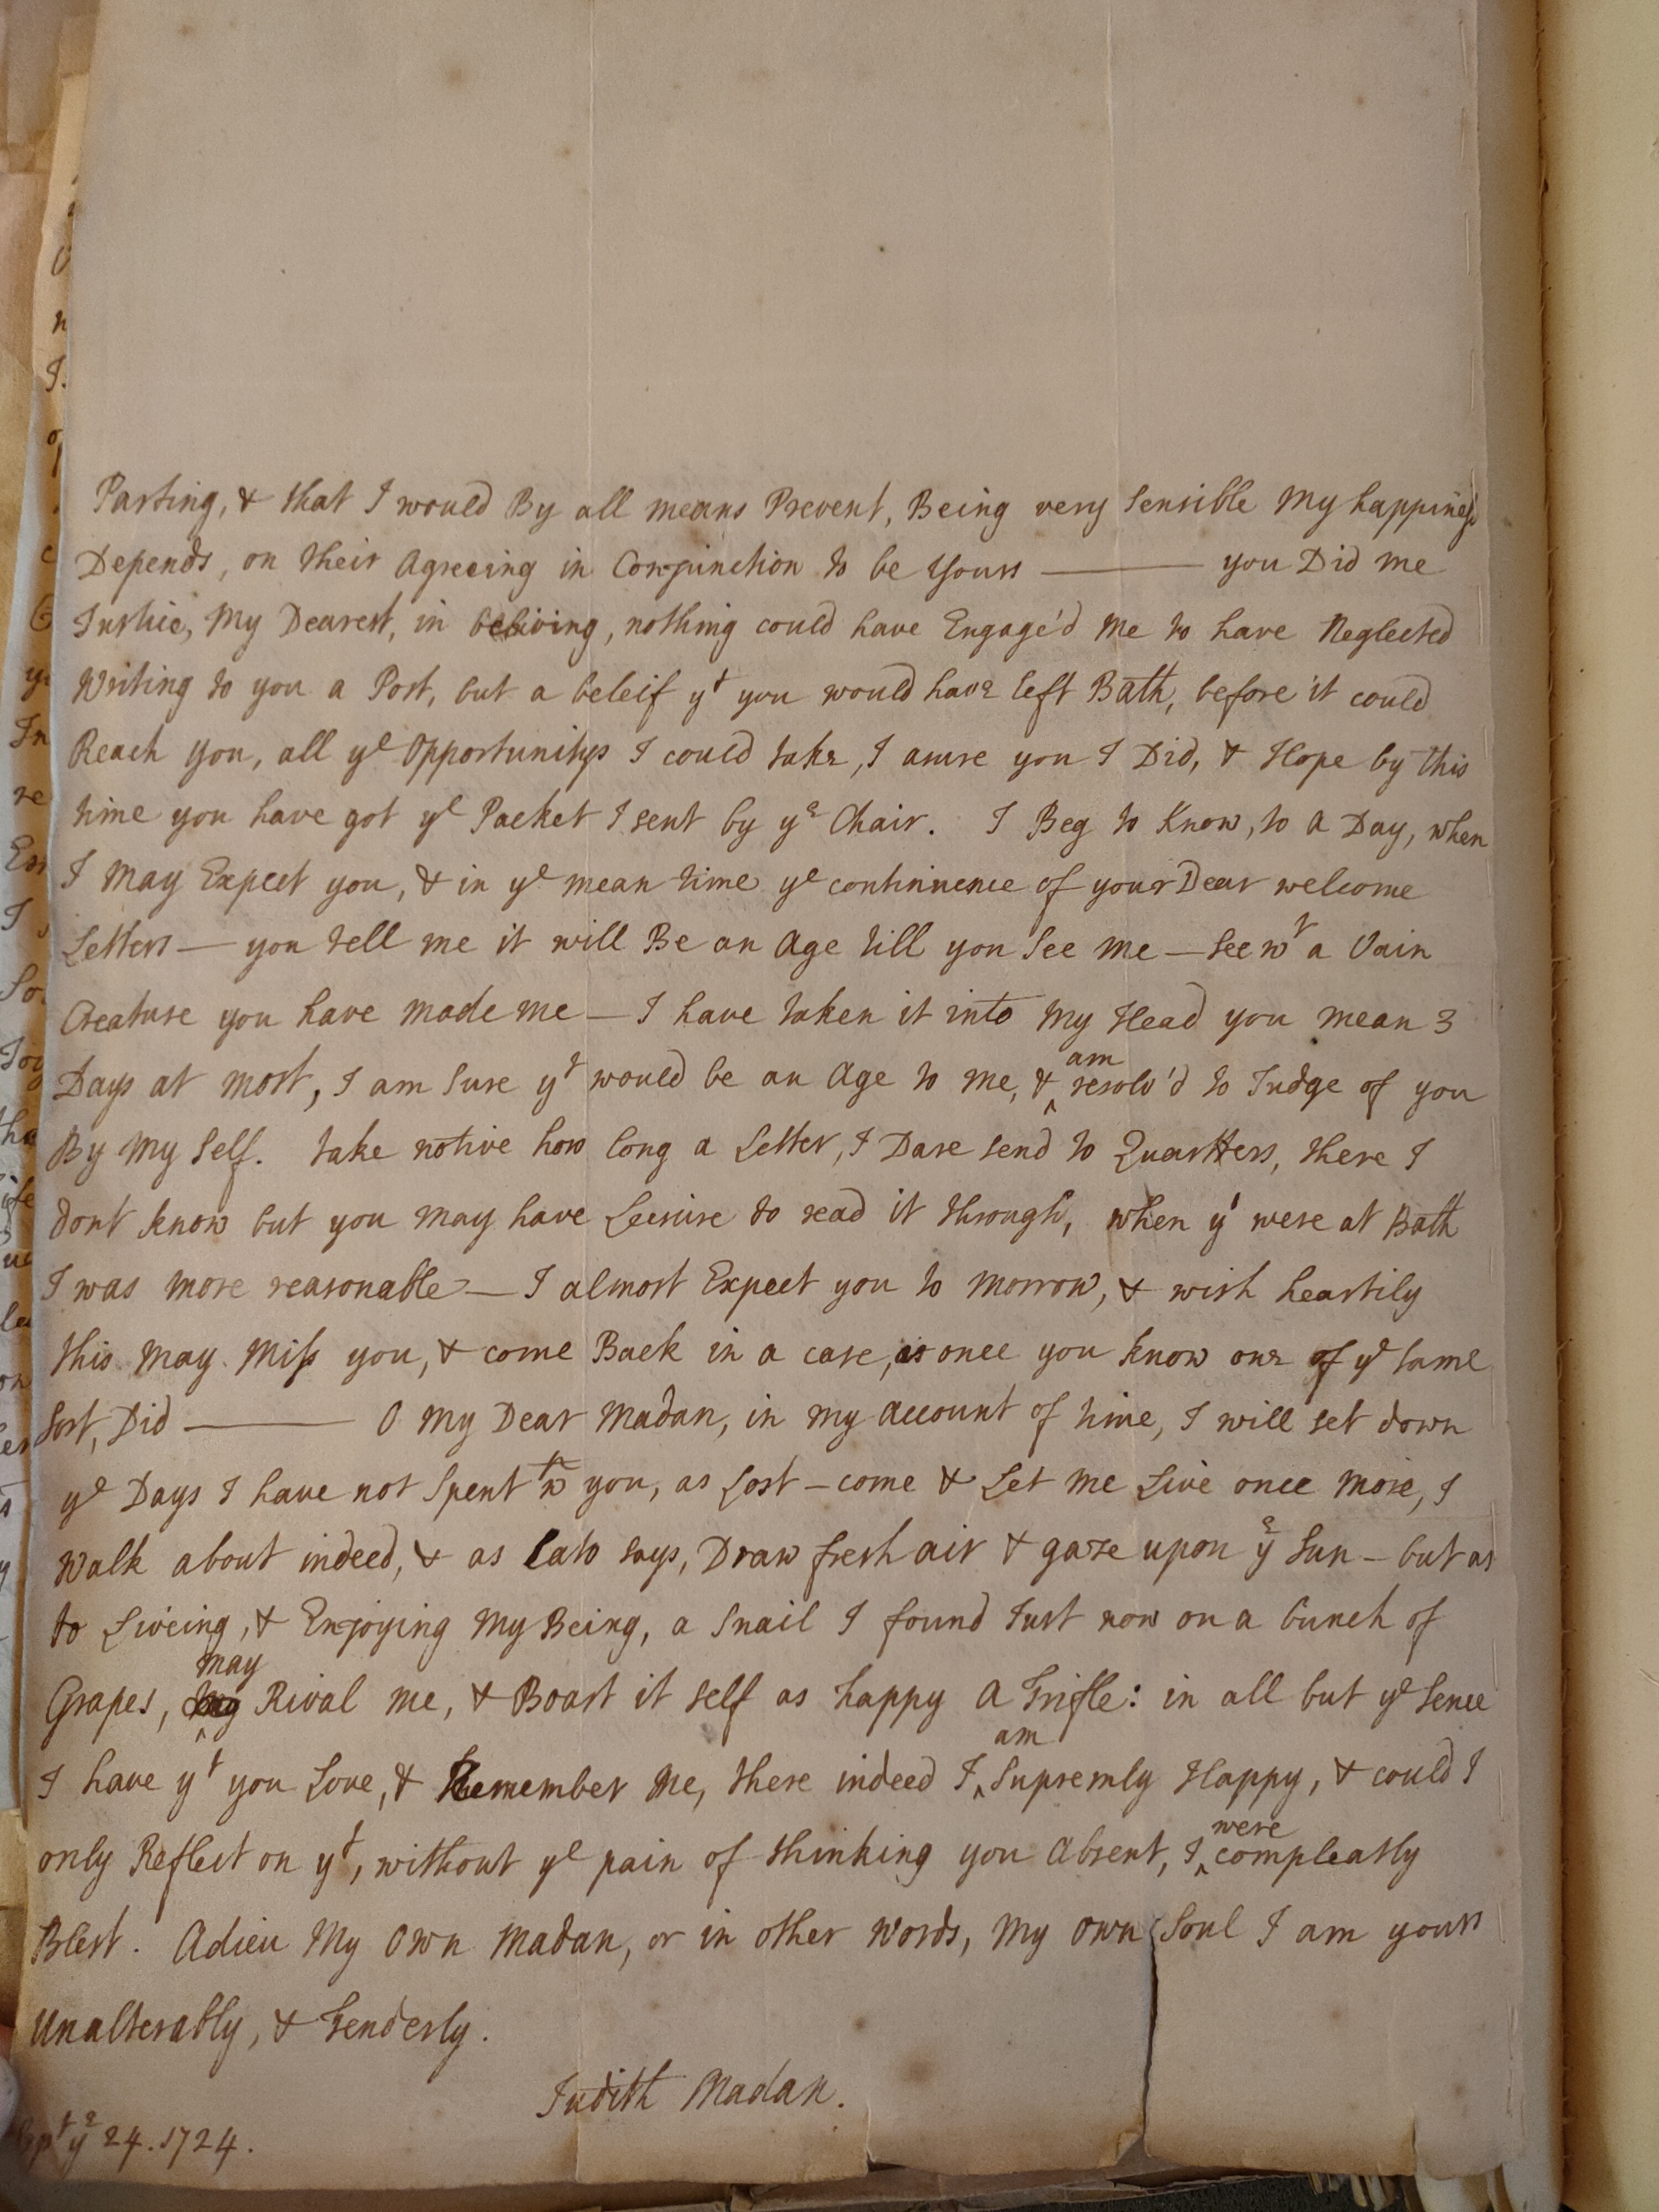 Parting, & that I would By all means Prevent, Being very Sensible My happiness
Depends, on their Agreeing in Conjunction to be Yours ——— you Did me
Justice, My Dearest, in beliving, nothing could have Engage'd Me to have Neglected
Writing to you a Post, but a beleif yt you would have left Bath, before it could
Reach you, all ye Opportunitys I could take, I assure you I Did, & Hope by this
time you have got ye Packet I sent by ye Chair. I Beg to Know, to a Day, when
I May Expect you, & in ye mean time ye continuence of your Dear welcome
Letters — you tell me it will Be an Age till you See Me — See wt a Vain
Creature you have made me — I have taken it into My Head you mean 3
Days at most, I am Sure yt would be an Age to me, & am resolv'd to Judge of you
By My Self. take notive how long a Letter, I Dare send to Quartters, there I
dont know but you may have Leesure to read it through, when yt were at Bath
I was more reasonable — I almost Expect you to morrow, & wish heartily
this May Miss you, & come Back in a case, as once you know one of ye same
Sort, Did ——— O My Dear Madan, in my account of time, I will set down
ye Days I have not Spent wth you, as Lost — come & Let Me Live once More, I
Walk about indeed, & as Cato says, Draw fresh air & gaze upon ye Sun — but as
to Liveing, & Enjoying My Being, a Snail I found Just now on a bunch of
Grapes, may Rival me, & Boast it self as happy a Trifle: in all but ye Sence
I have yt you Love, & Remember Me, there indeed I am Supremly Happy, & could I
only Reflect on yt, without ye pain of thinking you Absent, I were compleatly
Blest. Adieu My Own Madan, or in other Words, My own Soul I am yours
Unalterably, & tenderly.
Judith Madan.
Sept ye 24. 1724.